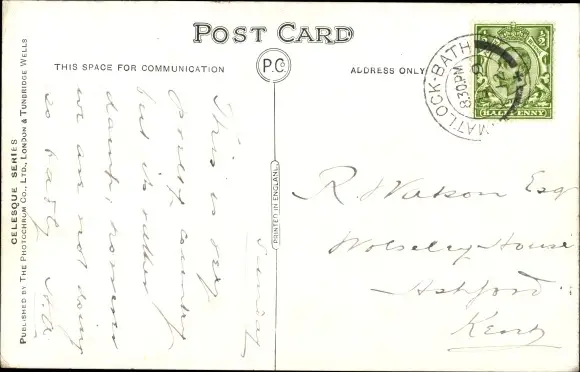 POST CARD
THIS SPACE FOR COMMUNICATION
P.C.
ADDRESS ONLY
MATLOCK-BATH
8.30PM
HALFPENNY
CELESQUE SERIES
PUBLISHED BY THE PHOTOCHROM CO., LTD., LONDON & TUNBRIDGE WELLS
PRINTED IN ENGLAND
Sunday
This is very
pretty country
but its rather
damp, however
we are not doing
so badly
R Watson Esq
Wolseley House
Ashford
Kent